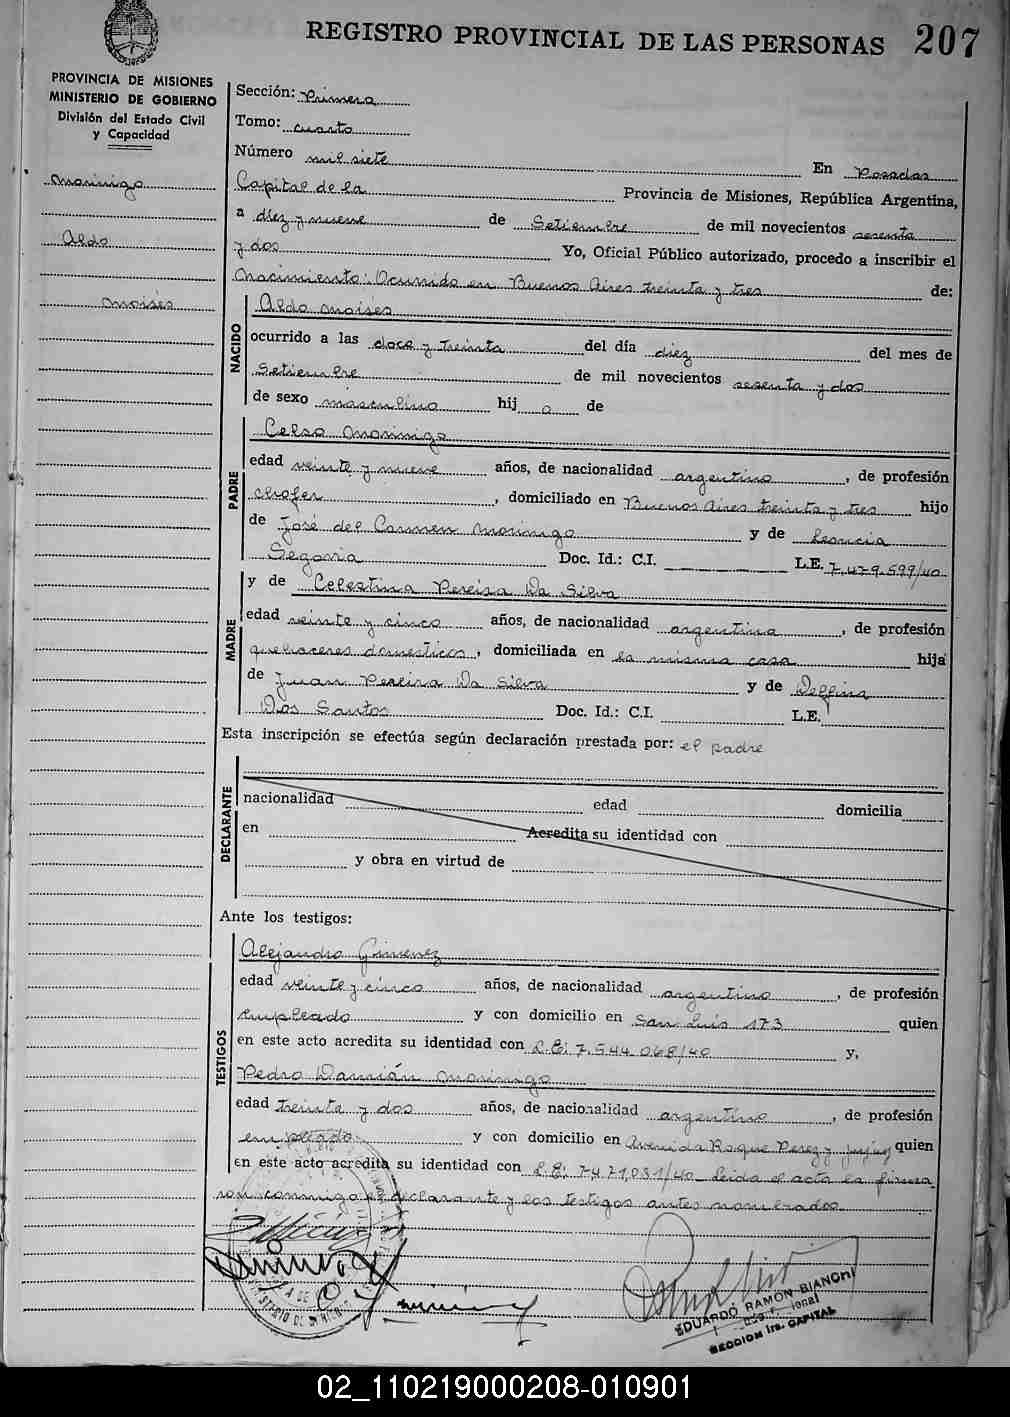 REGISTRO PROVINCIAL DE LAS PERSONAS 207
PROVINCIA DE MISIONES
MINISTERIO DE GOBIERNO
División del Estado Civil
y Capacidad
Morinigo
Aldo
Moisés
Sección: Primera
Tomo: cuarto
Número mil siete En Posadas
Capital de la Provincia de Misiones, República Argentina,
a diez y nueve de Setiembre de mil novecientos sesenta
y dos Yo, Oficial Público autorizado, procedo a inscribir el
Nacimiento: Ocurrido en Buenos Aires treinta y tres de:
NACIDO
Aldo Moisés
ocurrido a las doce y treinta del día diez del mes de
Setiembre de mil novecientos sesenta y dos
de sexo masculino hij o de
PADRE
Celso Morinigo
edad veinte y nueve años, de nacionalidad argentino, de profesión
chofer, domiciliado en Buenos Aires treinta y tres hijo
de José del Carmen Morinigo y de Leoncia
Segovia Doc. Id.: C.I. L.E. 7.479.599/40
MADRE
y de Celestina Pereira Da Silva
edad veinte y cinco años, de nacionalidad argentina, de profesión
quehaceres domesticos, domiciliada en la misma casa hija
de Juan Pereira Da Silva y de Delfina
Dos Santos Doc. Id.: C.I. L.E.
Esta inscripción se efectúa según declaración prestada por: el padre
DECLARANTE
nacionalidad edad domicilia
en Acredita su identidad con
y obra en virtud de
Ante los testigos:
TESTIGOS
Alejandro Gimenez
edad veinte y cinco años, de nacionalidad argentino, de profesión
empleado y con domicilio en San Luis 173 quien
en este acto acredita su identidad con L.E: 7.544.068/40 y,
Pedro Damián Morinigo
edad treinta y dos años, de nacionalidad argentino, de profesión
empleado y con domicilio en Avenida Roque Perez y Jujuy quien
en este acto acredita su identidad con L.E: 7.471.031/40 Leida el acta la firma
ron conmigo el declarante y los testigos antes nombrados.
EDUARDO RAMON BIANCHI
SECCION 1ra. CAPITAL
02_110219000208-010901